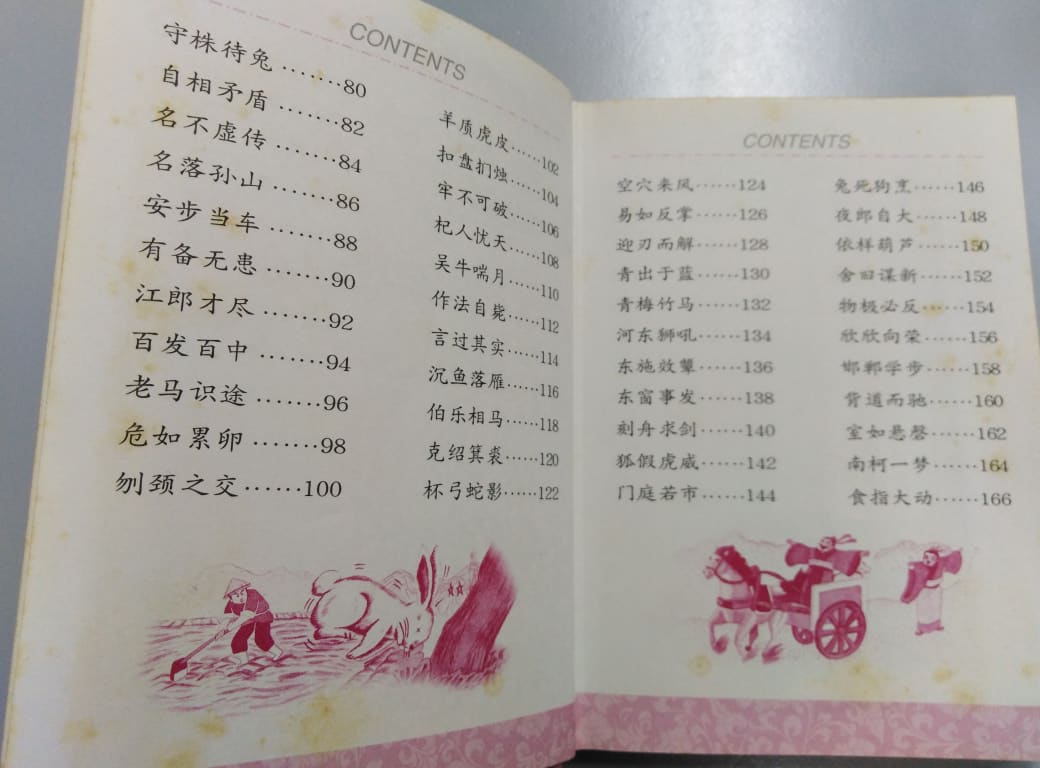 CONTENTS
守株待兔·······80
自相矛盾·······82
名不虚传·······84
名落孙山·······86
安步当车·······88
有备无患·······90
江郎才尽·······92
百发百中·······94
老马识途·······96
危如累卵·······98
刎颈之交······100
羊质虎皮······102
扣盘扪烛······104
牢不可破······106
杞人忧天······108
吴牛喘月······110
作法自毙······112
言过其实······114
沉鱼落雁······116
伯乐相马······118
克绍箕裘······120
杯弓蛇影······122
CONTENTS
空穴来风······124
易如反掌······126
迎刃而解······128
青出于蓝······130
青梅竹马······132
河东狮吼······134
东施效颦······136
东窗事发······138
刻舟求剑······140
狐假虎威······142
门庭若市······144
兔死狗烹······146
夜郎自大······148
依样葫芦······150
舍旧谋新······152
物极必反······154
欣欣向荣······156
邯郸学步······158
背道而驰······160
室如悬磬······162
南柯一梦······164
食指大动······166